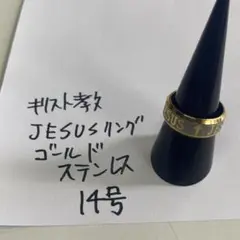 キリスト教
JESUSリング
ゴールド
ステンレス
14号
SUS † JE